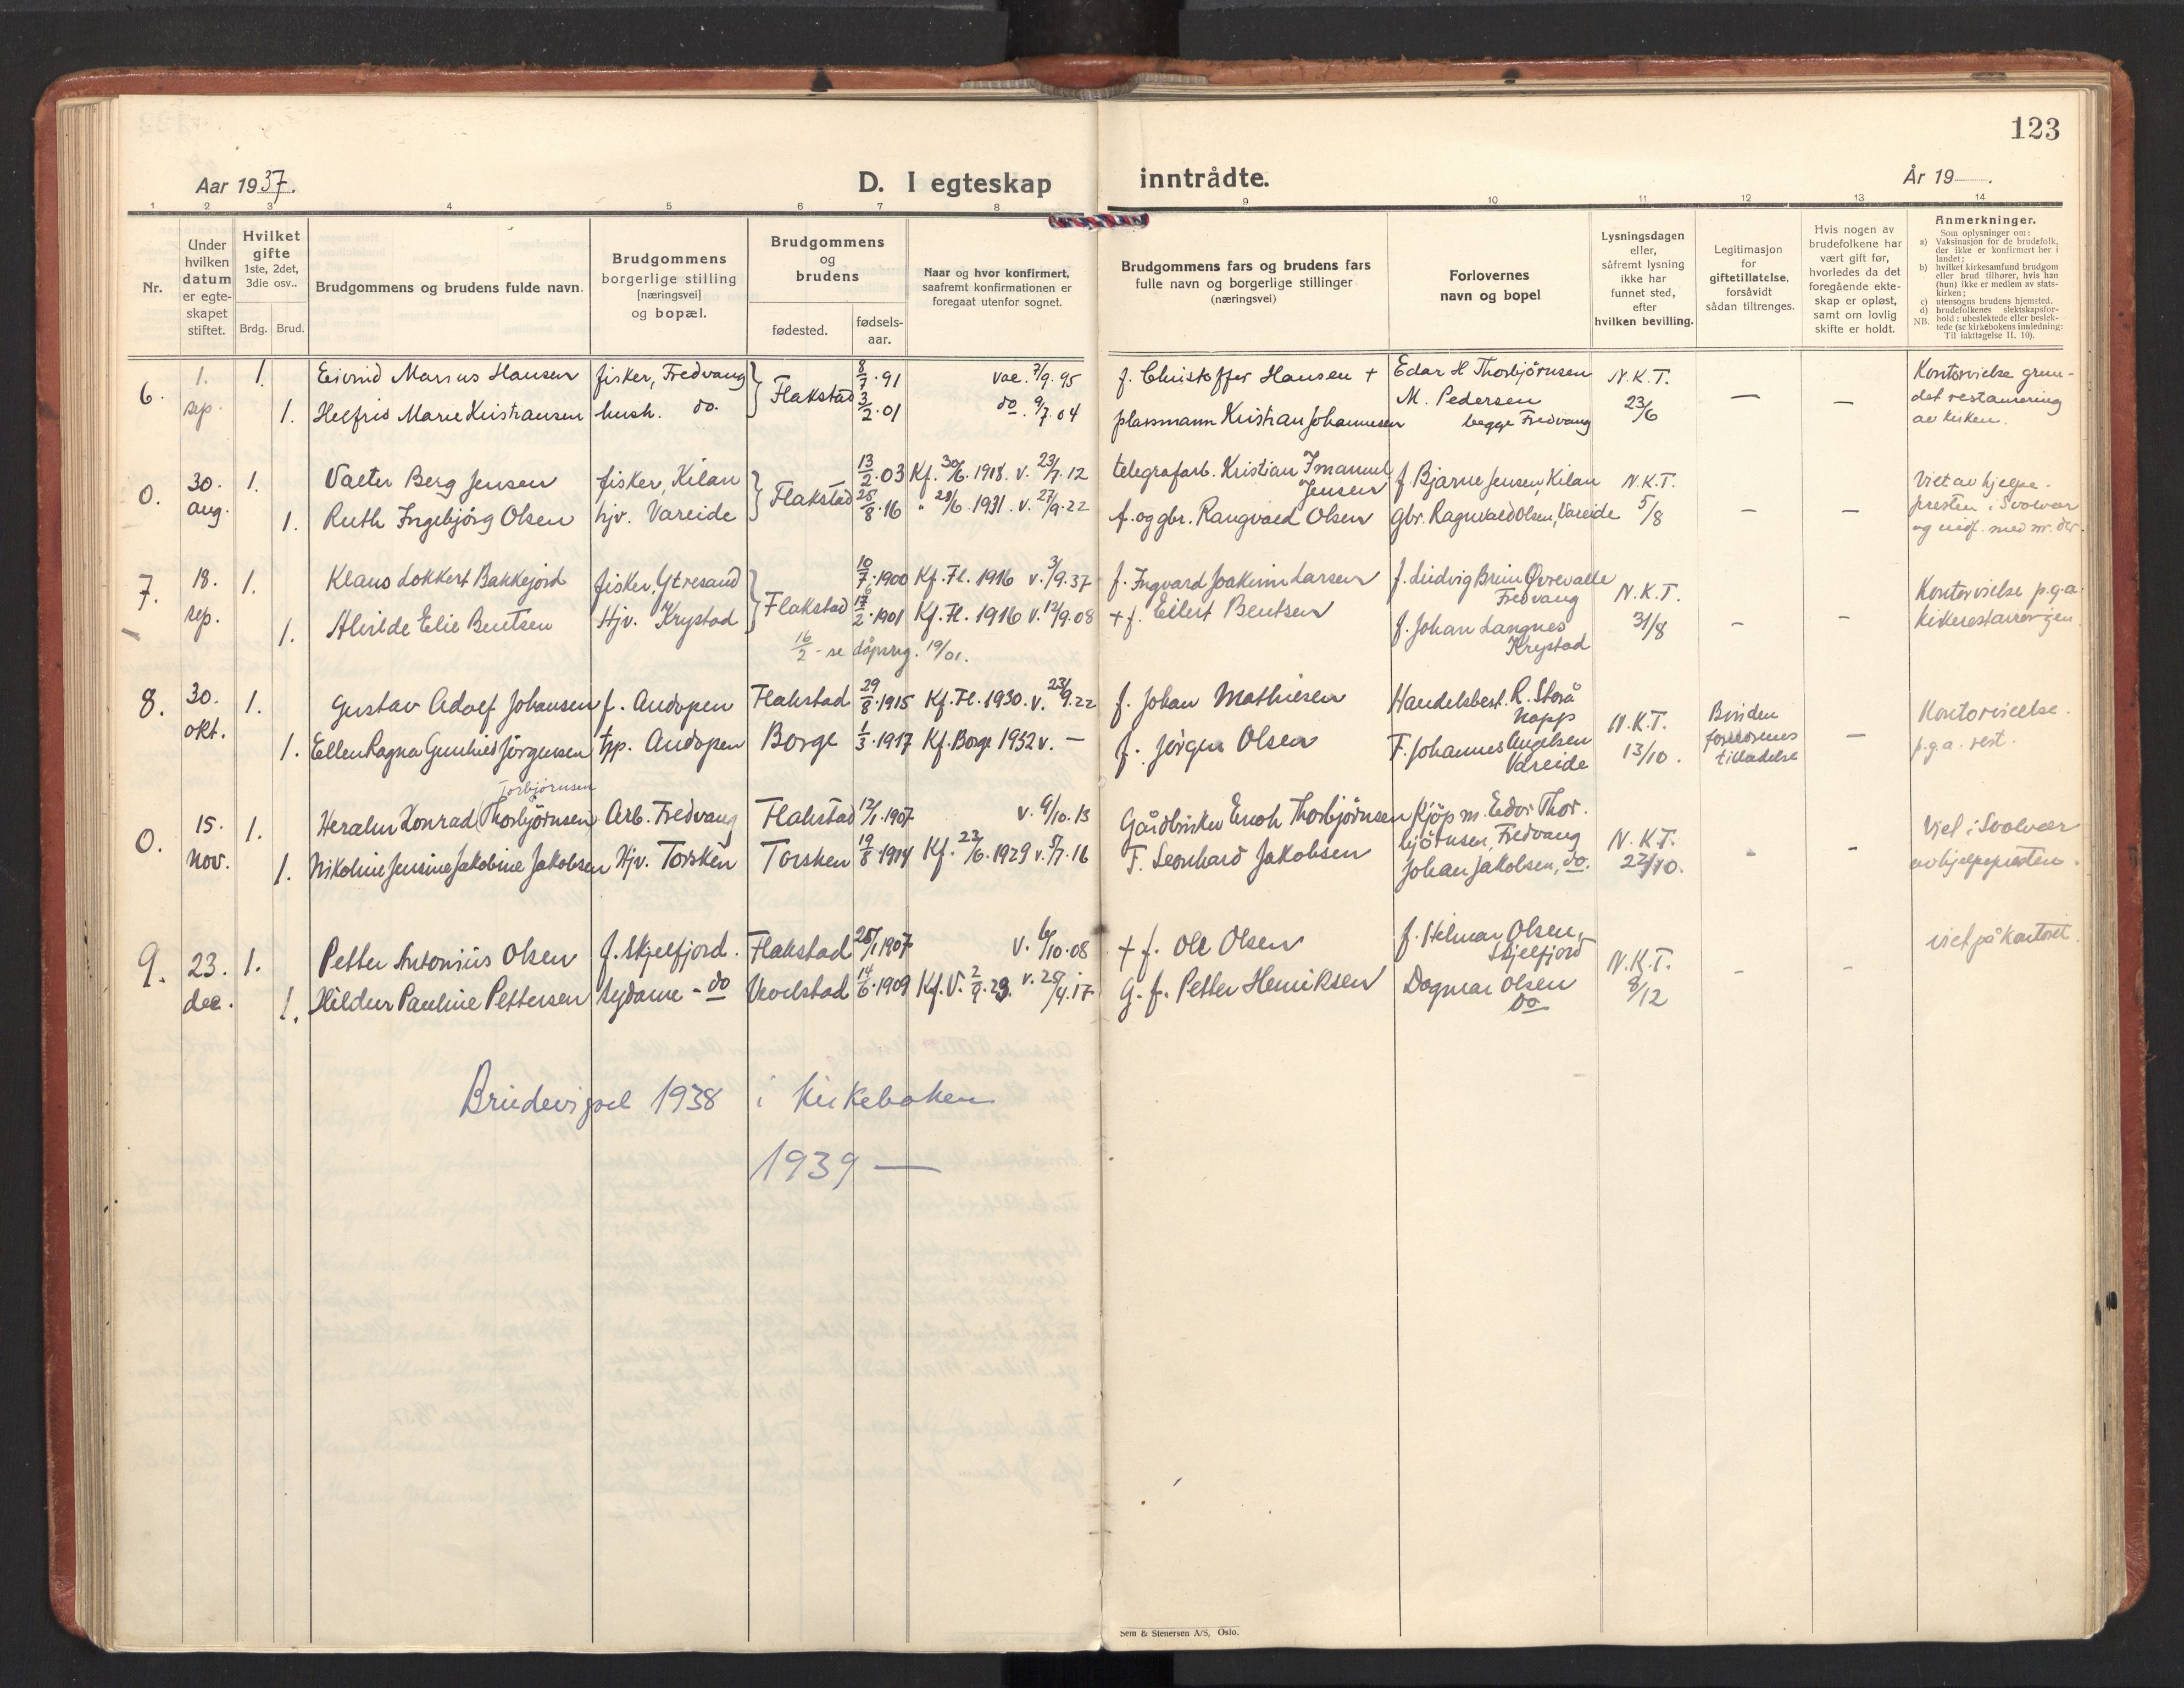 123
Aar 1937.
D. I egteskap inntrådte.
År 19—.
1 2 3 4 5 6 7 8 9 10 11 12 13 14
Nr.
Under
hvilken
datum
er egte-
skapet
stiftet.
Hvilket
gifte
1ste, 2det,
3die osv..
Brdg. Brud.
Brudgommens og brudens fulde navn.
Brudgommens
borgerlige stilling
[næringsvei]
og bopæl.
Brudgommens
og
brudens
fødested.
fødsels-
aar.
Naar og hvor konfirmert,
saafremt konfirmationen er
foregaat utenfor sognet.
Brudgommens fars og brudens fars
fulle navn og borgerlige stillinger
(næringsvei)
Forlovernes
navn og bopel
Lysningsdagen
eller,
såfremt lysning
ikke har
funnet sted,
efter
hvilken bevilling.
Legitimasjon
for
giftetillatelse,
forsåvidt
sådan tiltrenges.
Hvis nogen av
brudefolkene har
vært gift før,
hvorledes da det
foregående ekte-
skap er opløst,
samt om lovlig
skifte er holdt.
Anmerkninger.
Som oplysninger om:
a) Vaksinasjon for de brudefolk,
der ikke er konfirmert her i
landet;
b) hvilket kirkesamfund brudgom
eller brud tilhører, hvis han
(hun) ikke er medlem av stats-
kirken;
c) utensogns brudens hjemsted.
d) brudefolkenes slektskapsfor-
hold: ubeslektede eller beslek-
NB. tede (se kirkebokens innledning:
Til iakttagelse II. 10).
6. 1. sep. 1. Eivind Marius Hansen fisker, Fredvang Flakstad 8/7.91 vac. 7/9.95 f. Christoffer Hansen + Edar H Thorbjörnsen N.K.T. 23/6 — — Kontorvielse grun-
1. Helfrid Marie Kristiansen hush. do. 3/2.01 do. 9/7.04 plassmann Kristian Johannesen M. Pedersen
begge Fredvang
det restaurering
av kirken.
0. 30. aug. 1. Valter Berg Jensen fisker, Kilan Flakstad 13/2.03 Kf. 30/6.1918. v. 23/7.12 telegrafarb. Kristian Imanuel
Jensen f. Bjarne Jensen, Kilan N.K.T. 5/8 - - Viet av hjelpe-
1. Ruth Ingebjörg Olsen hjv. Vareide 25/8.16 " 28/6.1931. v. 27/9.22 f. og gbr. Rangvald Olsen Gbr. Ragnvald Olsen, Vareide
presten i Svolvær
7. 18. sep. 1. Klaus Lokkert Bakkejord fisker, Ytresand Flakstad 10/7.1900 Kf. Fl. 1916 v. 3/9.37 f. Ingvard Joakim Larsen f. Ludvig Brun Övrevalle
Fredvang N.K.T. 31/8 - - Kontorvielse p.g.a.
1. Alvilde Elie Bentsen Hjv. Krystad 17/2.1901 Kf. Fl. 1916 v. 12/9.08 + f. Eilert Bentsen f. Johan Langnes
Krystad
16/2 - se dåpsreg. 19/01.
8. 30. okt. 1. Gustav Adolf Johansen f. Andopen Flakstad 29/8.1915 Kf. Fl. 1930. v. 23/9.22 f. Johan Mathiesen Handelsbest. R. Storå
Napp N.K.T. 13/10. — Kontorvielse.
1. Ellen Ragna Gunhild Jörgensen tjp. Andopen Borge 1/3.1917 Kf. Borge 1932 v. — f. Jörgen Olsen F. Johannes Angelsen
Vareide
tillatelse
p.g.a. rest.
Torbjörnsen
0. 15. Nov. 1. Konrad (Thorbjörnsen) Arb. Fredvang Flakstad 12/1.1907 v. 9/10.13 Gårdbruker Enoh Thorbjörnsen Kjöpm. Edor Thor-
björnsen, Fredvang N.K.T. 22/10. - - Viet i Svolvær
1. Nikoline Jensine Jakobine Jakobsen Hjv. Torsken Torsken 19/8.1914 Kf. 23/6.1929 v. 5/7.16 F. Leonhard Jakobsen Johan Jakobsen, do. av hjelpepresten.
9. 23. dec. 1. Petter Antonius Olsen f. Skjelfjord. Flakstad 25/1 1907 v. 6/10.08 + f. Ole Olsen f. Helmar Olsen,
Skjelfjord N.K.T. 8/12 - - viet på kontoret.
1. Hildur Pauline Pettersen sydame - do 14/6.1909 Kf. V. 2/9.23. v. 28/4.17 G. f. Petter Henriksen Dagmar Olsen
Do
Brudevigsel 1938 i kirkeboken
1939 —
Sem & Stenersen A/S, Oslo.